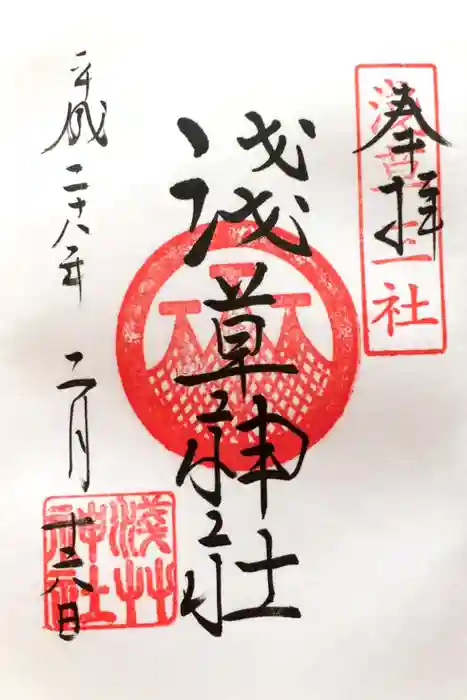 奉拝
浅草三社
淺草神社
平成二十八年 二月 十六日
淺草神社